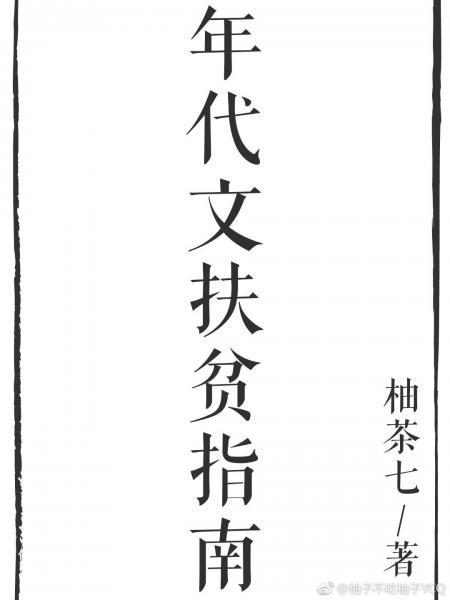 年代文扶贫指南
柚茶七/著
@柚子不吃柚子YCQ